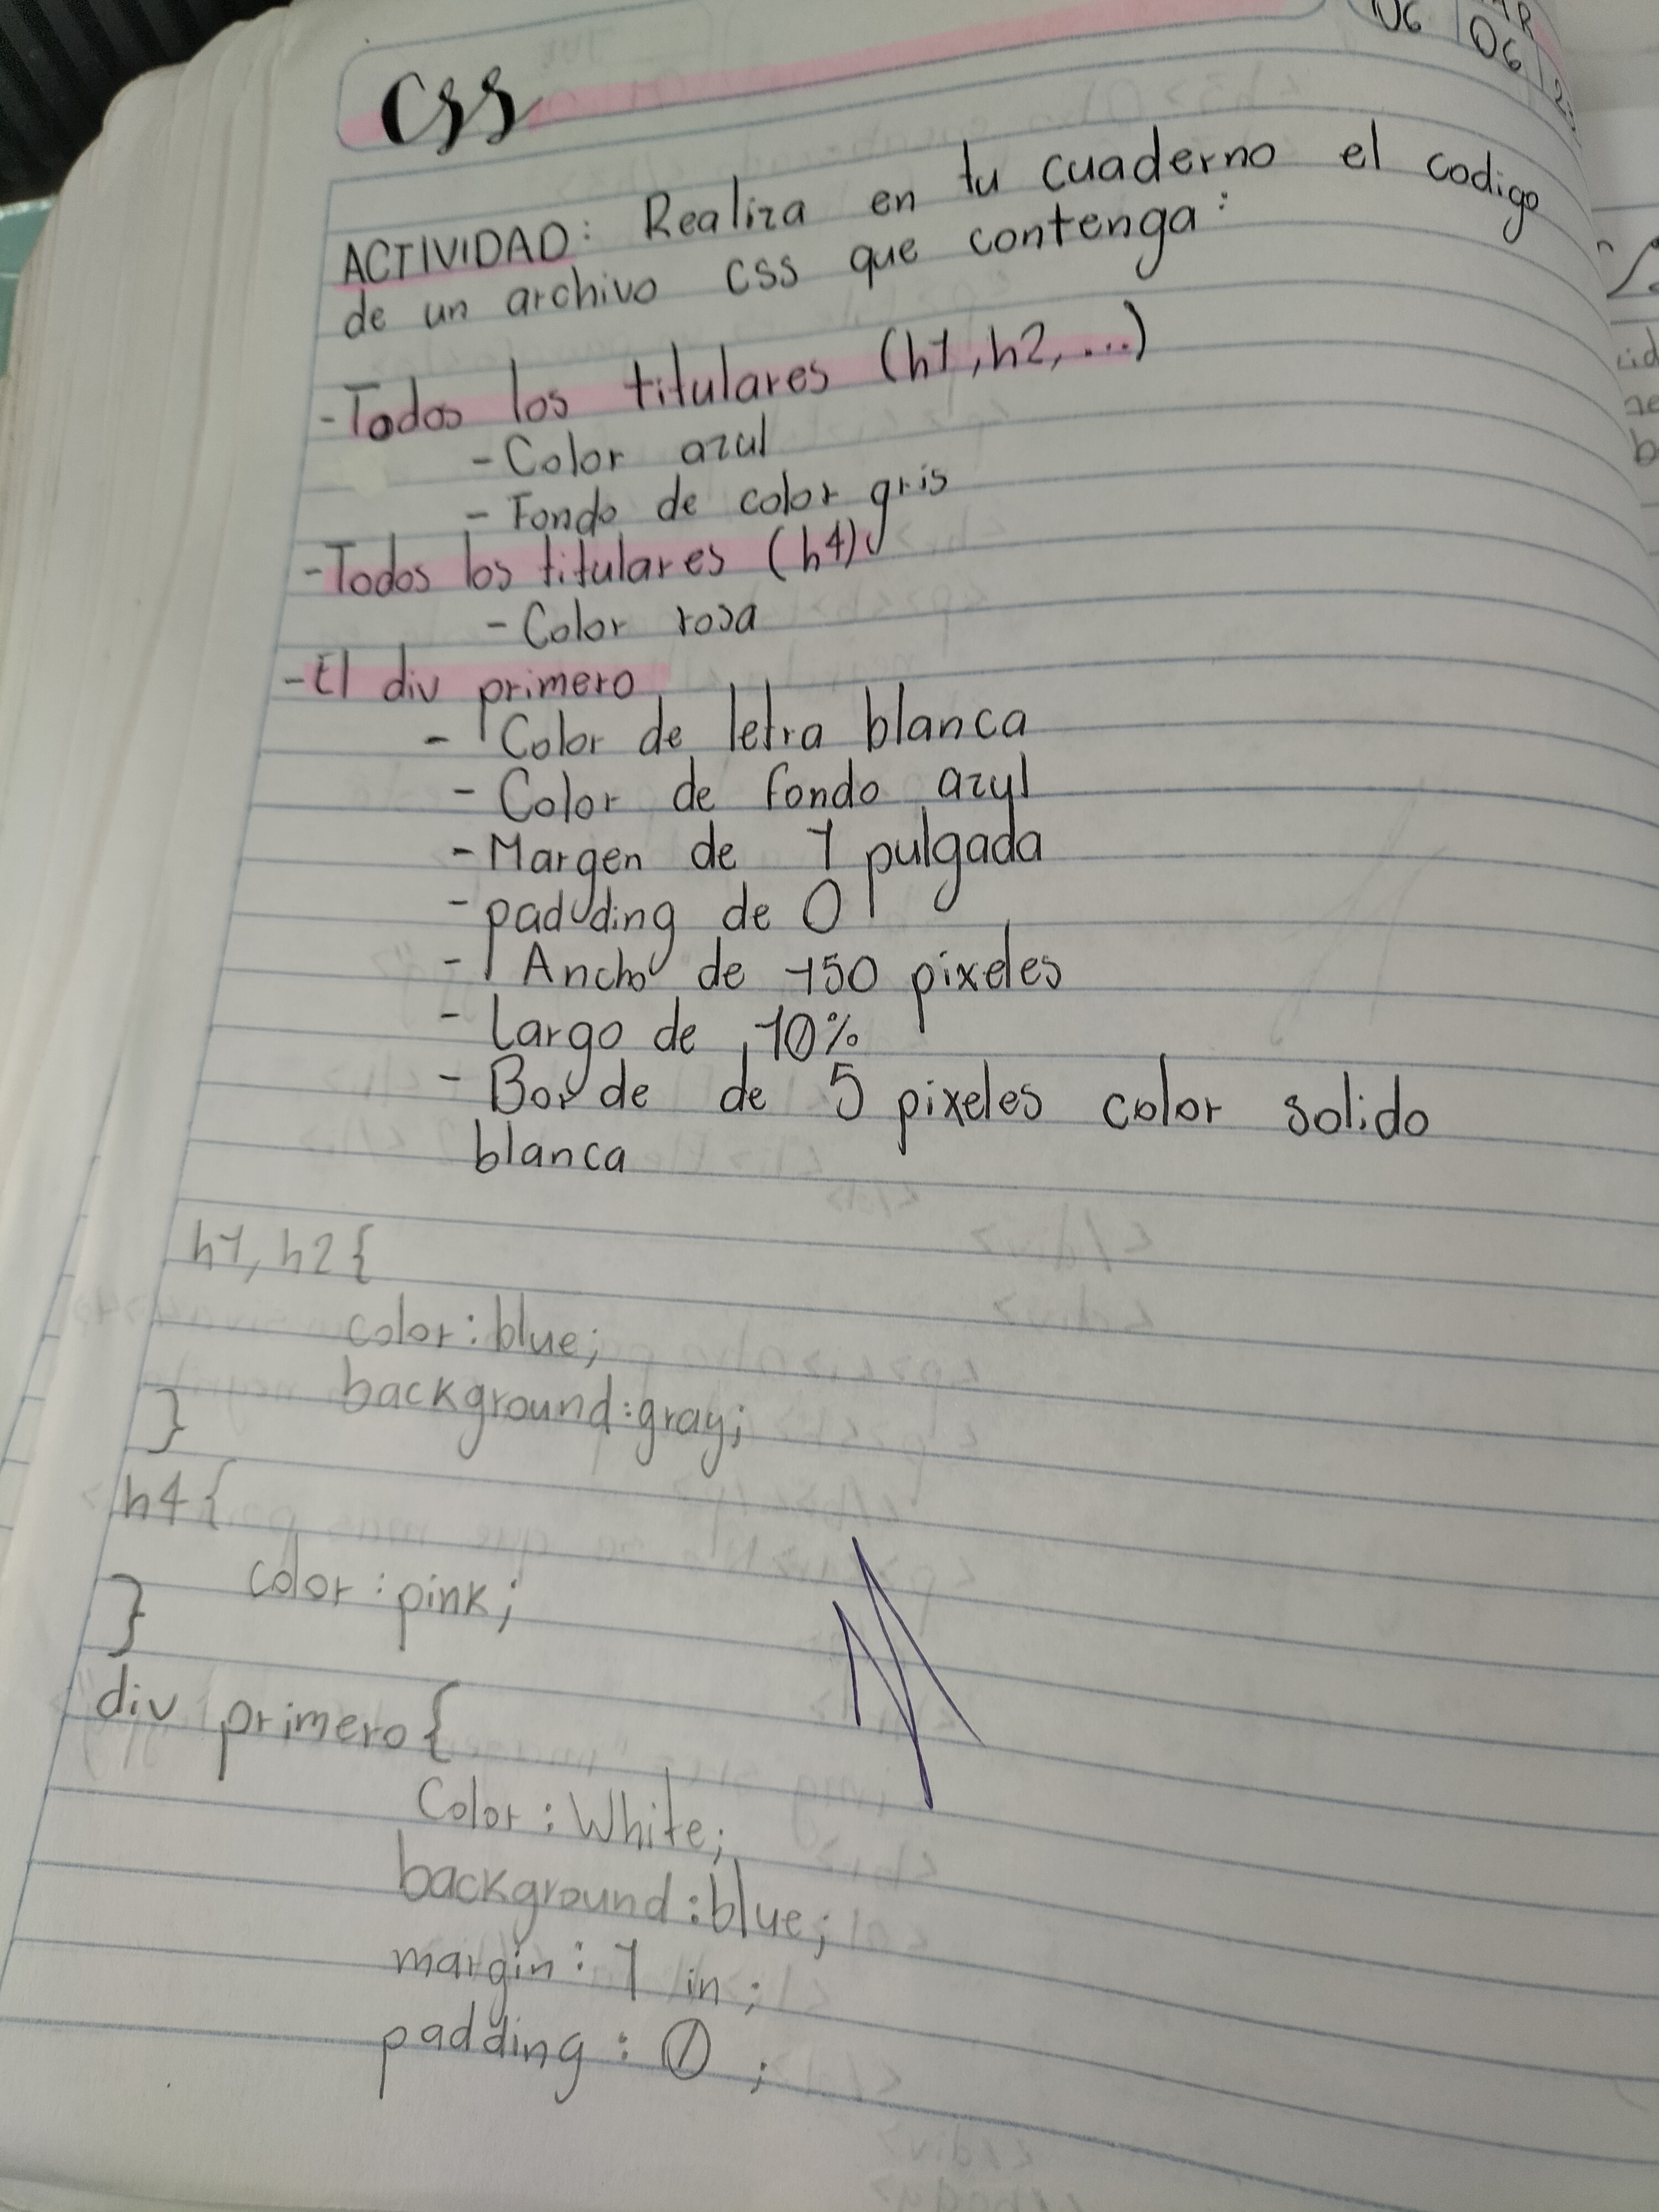 CSS
06
06
ACTIVIDAD: Realiza en tu cuaderno el codigo
de un archivo CSS que contenga:
-Todos los titulares (h1, h2, ...)
- Color azul
- Fondo de color gris
-Todos los titulares (h4)
- Color rosa
-El div primero
- Color de letra blanca
- Color de fondo azul
- Margen de 1 pulgada
- padding de 0
- Ancho de 150 pixeles
- Largo de 10%
- Borde de 5 pixeles color solido
blanca
h1, h2 {
color: blue;
background: gray;
}
h4 {
color: pink;
}
div primero {
Color: White;
background: blue;
margin: 1 in;
padding: 0;